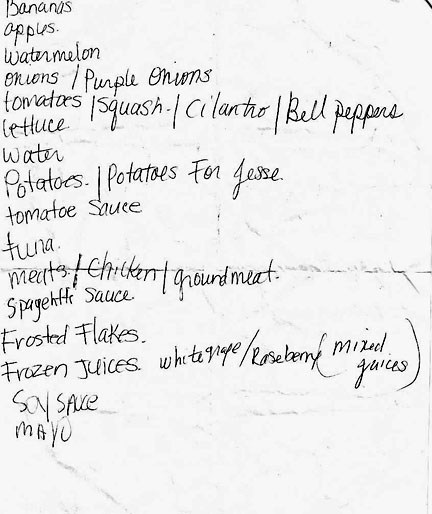 Bananas
apples.
Watermelon
onions / Purple Onions
tomatoes / Squash / Cilantro / Bell peppers
lettuce
Water
Potatoes. / Potatoes For Jesse.
tomatoe Sauce
tuna.
meats / Chicken / ground meat.
Spagehtti Sauce
Frosted Flakes.
Frozen Juices. white grape / Raseberry (mixed juices)
SOY SAUCE
MAYO